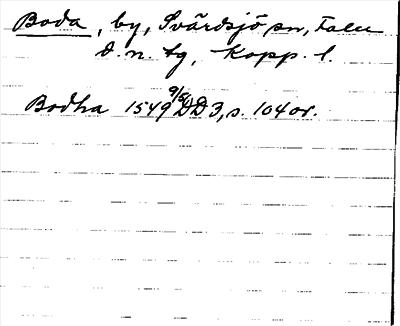 Boda, by, Svärdsjö sn, Falu
d. n. tg, Kopp. l.
Bodha 1549 9/5 DD 3, s. 104 or.